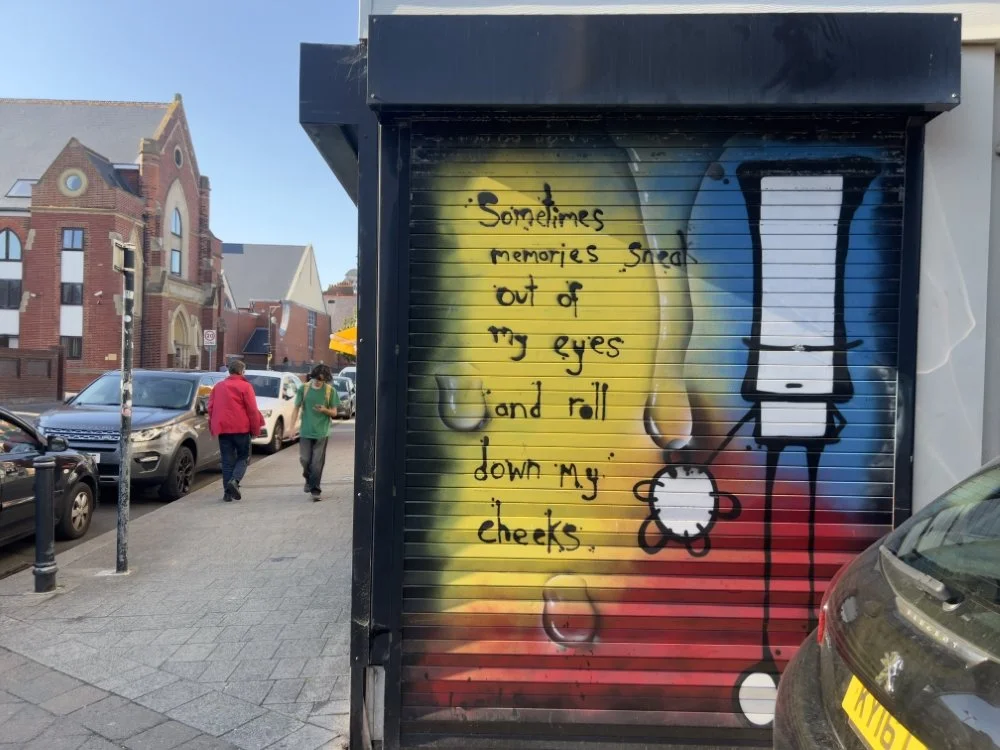 Sometimes
memories sneak
out of
my eyes
and roll
down my
cheeks.
KY16